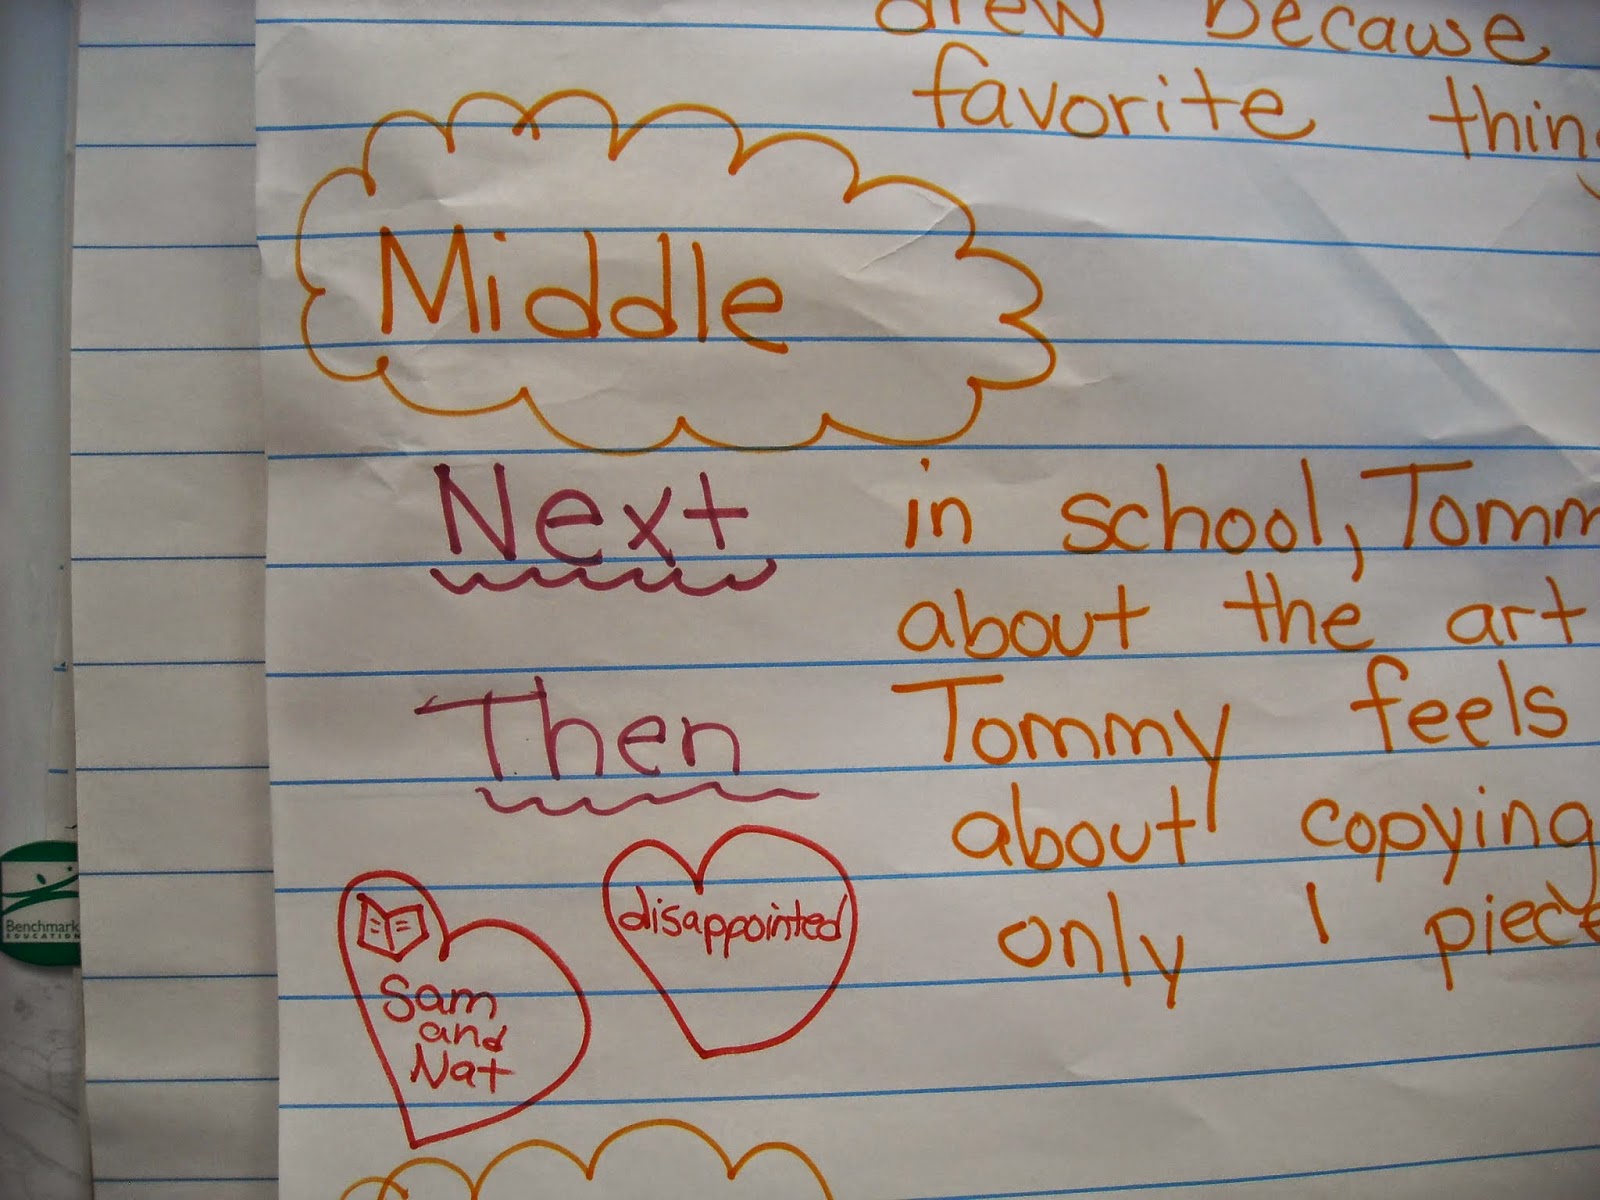 drew because
favorite thing
Middle
Next in school, Tomm
about the art
Then Tommy feels
about copying
only 1 piece
disappointed
Sam
and
Nat
Benchmark
EDUCATION